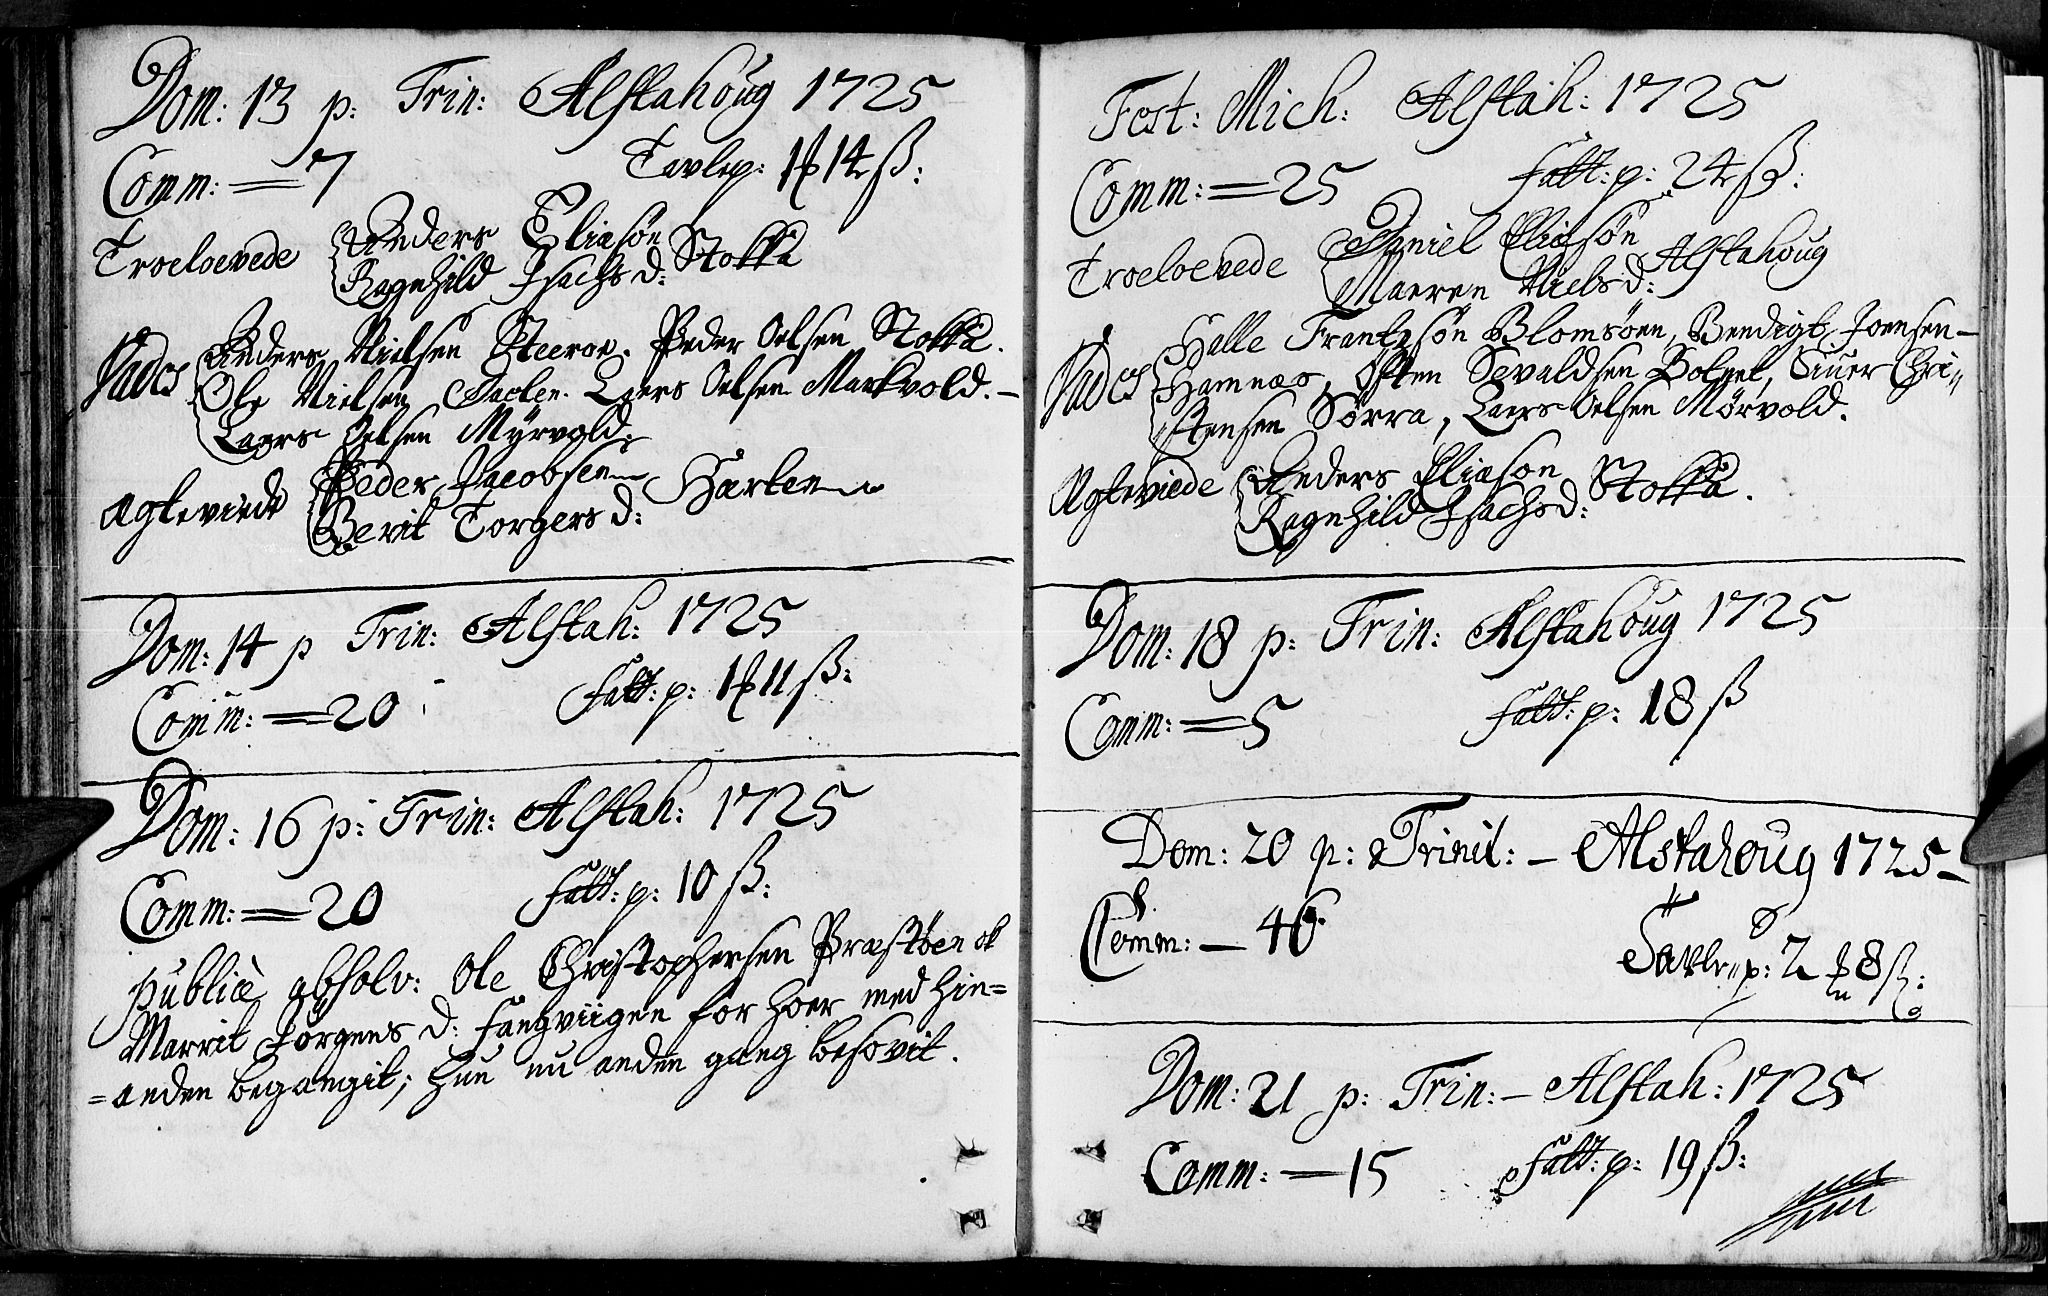 Dom: 13 p: Trin: Alstahoug 1725
Comm: = 7 Tavlep: 1 14 ß:
Troeloevede Anders Eliasøn Stokka
Ragnhild Isachs d:
Vades Anders Nielsen Steeroe. Peder Oelsen Stokka.
Ole Nielsen Laers Oelsen Markvold. –
Laers Oelsen Myrvold.
Agteviede Peder Jacobsen Harten
Berit Torgers d:
Dom: 14 p Trin: Alstah: 1725
Comm: = 20 Fatt: p: 1 11 ß:
Dom: 16 p: Trin: Alstah: 1725
Comm: = 20 Fatt: p: 10 ß:
publicè absolv: Ole Christophersen Præstøen ok
Marrit Jørgens d: Fangviigen for hoer med hin=
=anden begangit; hun nu anden gang besovit.
Fest: Mich: Alstah: 1725
Comm: = 25 Fatt: p: 24 ß:
Troeloevede Daniel Eliasøn Alstahoug
Maeren Niels d:
Vades Halle Frantzøn Blomsøen, Bendigt Joensen –
Hamnæs, Østen Sevaldsen Bolnet, Siuer Chri„
stensen Sørra, Laers Oelsen Mørvold.
Agteviede Anders Eliasøn Stokka.
Ragnhild Isachs d:
Dom: 18 p: Trin: Alstahoug 1725
Comm: = 5 Fatt: p: 18 ß
Dom: 20 p: Trinit: – Alstahoug 1725 –
Comm: – 46 Tavle„p: 2 8 ß:
Dom: 21 p: Trin: – Alstah: 1725
Comm: – 15 Fatt: p: 19 ß: